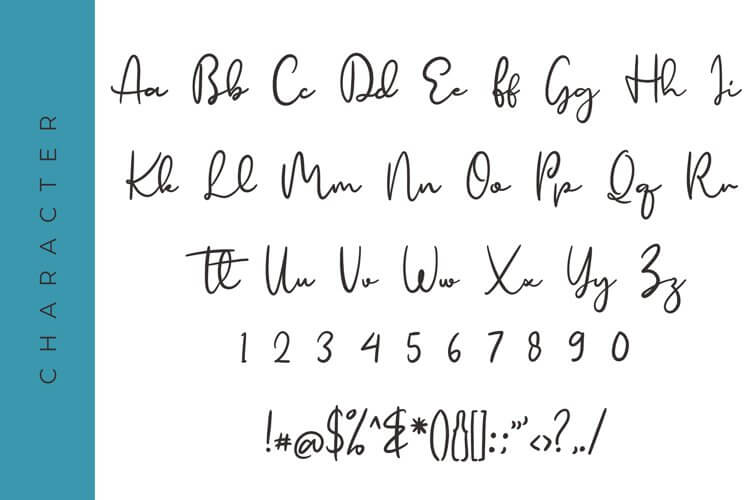 CHARACTER
Aa Bb Cc Dd Ee Ff Gg Hh Ii
Kk Ll Mm Nn Oo Pp Qq Rr
Tt Uu Vv Ww Xx Yy Zz
1 2 3 4 5 6 7 8 9 0
!#@$%^&*(){}[]:;"'<>?,./